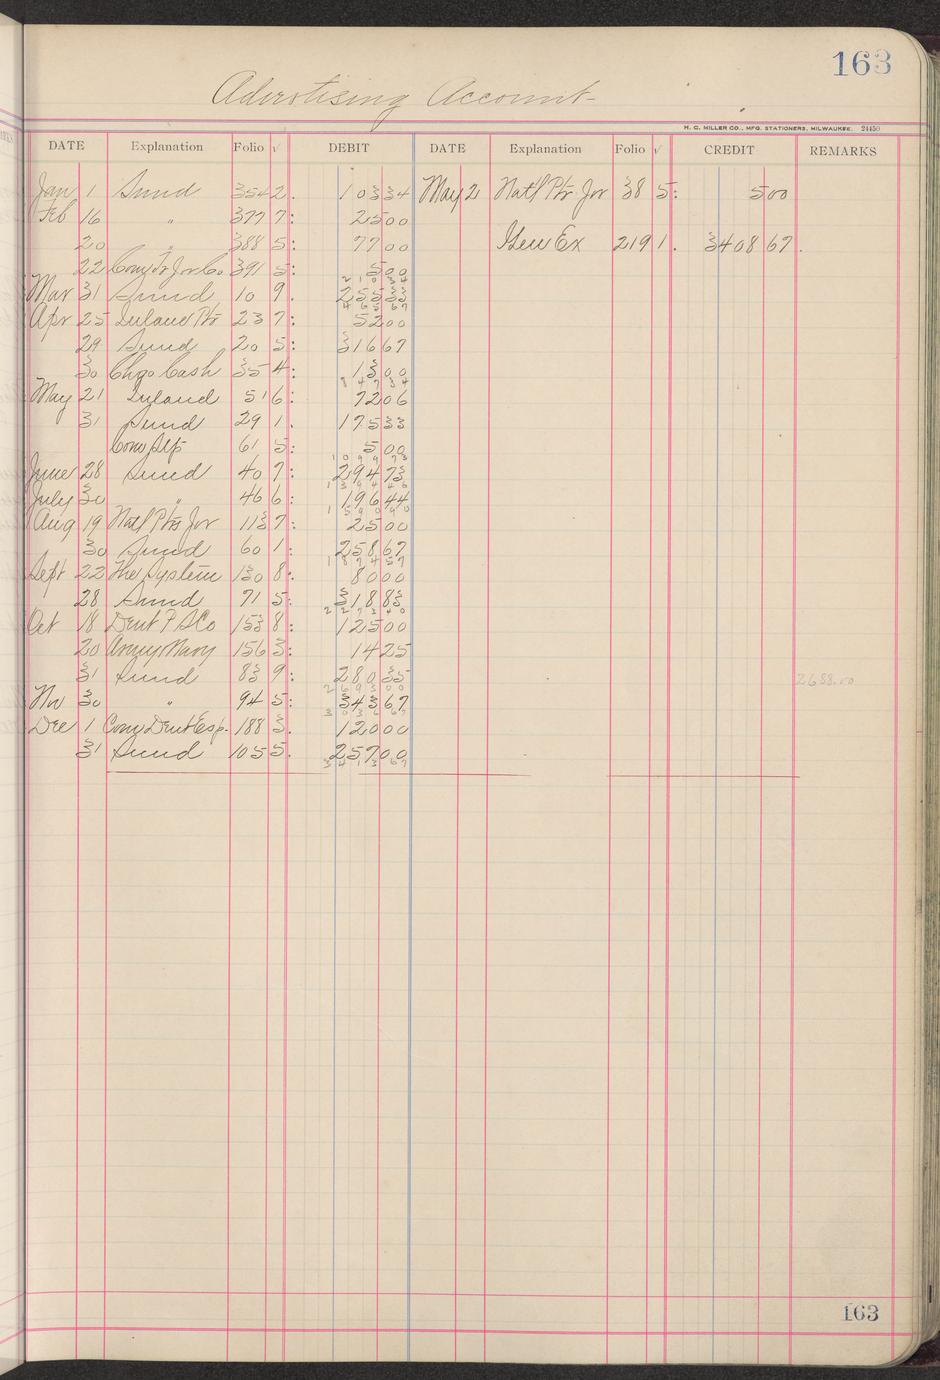 163
Advertising Account
H. C. MILLER CO., MFG. STATIONERS, MILWAUKEE. 24450
DATE Explanation Folio √ DEBIT DATE Explanation Folio √ CREDIT REMARKS
Jan 1 Sund 354 2. 103 34 May 2 Nat'l Ptr Jor 38 5: 5 00
Feb 16 " 377 7: 25 00
20 " 388 5: 77 00 Gen Ex 219 1. 3408 67
22 391 5: 5 00
210 34
Mar 31 Sund 10 9. 255 33
465 67
Apr 25 Inland Ptr 23 7: 52 00
29 Sund 20 5: 316 67
30 Chgo Cash 35 4: 13 00
847 34
May 21 Inland 51 6: 72 06
31 Sund 29 1. 175 33
61 5: 5 00
1099 73
June 28 Sund 40 7: 294 73
1394 46
July 30 " 46 6: 196 44
1590 90
Aug 19 Natl Ptrs Jor 113 7: 25 00
30 Sund 60 1: 258 67
1874 57
Sept 22 The System 130 8. 80 00
28 Sund 71 5: 318 83
2273 40
Oct 18 Dent P S Co 153 8: 125 00
20 Army Navy 156 3: 14 25
31 Sund 83 9: 280 35 2688.00
2693 00
Nov 30 " 94 5: 343 67
3036 67
Dec 1 Com Dent Esp. 188 3. 120 00
31 Sund 105 5. 257 00
3413 67
163